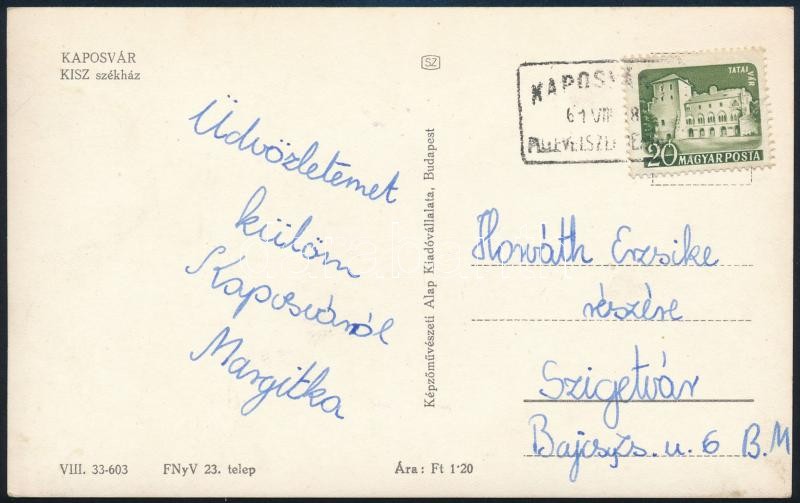 KAPOSVÁR
KISZ székház
SZ
Üdvözletemet
küldöm
Kaposváról
Margitka
VIII. 33-603 FNyV 23. telep Ára: Ft 1'20
Képzőművészeti Alap Kiadóvállalata, Budapest
KAPOSV
61 VIII 8
TATAI
VÁR
20 MAGYAR POSTA
Horváth Erzsike
részére
Szigetvár
Bajcsy Zs. u. 6 B.M